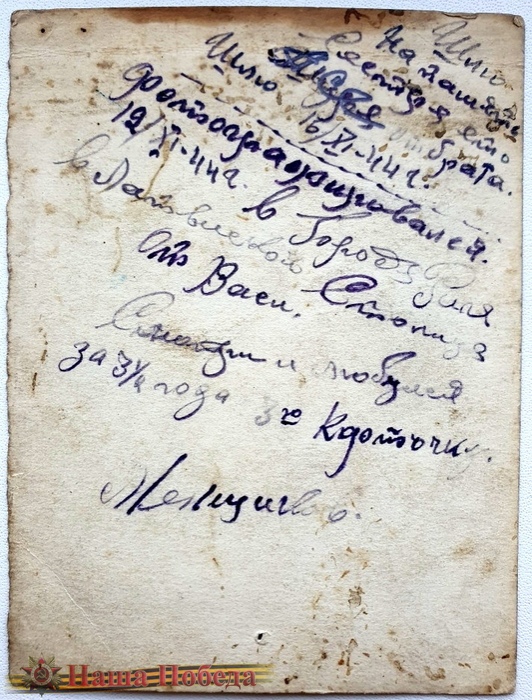 Шлю
на память
Сестра это
от брата.
Шлю 15/XI-44 г.
Фотографировался.
12/XI-44 г. в городе Рига
в Латвийской Столице
От Васи.
Смотри и любуйся
за 3¼ года 3ю Кдоточку.
Меньщиков.
Наша Победа